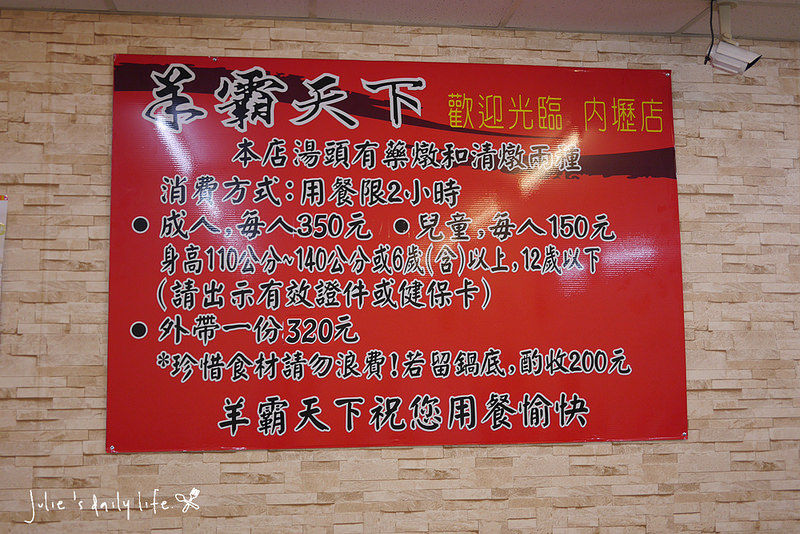 羊霸天下 歡迎光臨 內壢店
本店湯頭有藥燉和清燉兩種
消費方式:用餐限2小時
●成人,每人350元 ●兒童,每人150元
身高110公分~140公分或6歲(含)以上,12歲以下
(請出示有效證件或健保卡)
●外帶一份320元
*珍惜食材請勿浪費!若留鍋底,酌收200元
羊霸天下祝您用餐愉快
Julie's daily life.